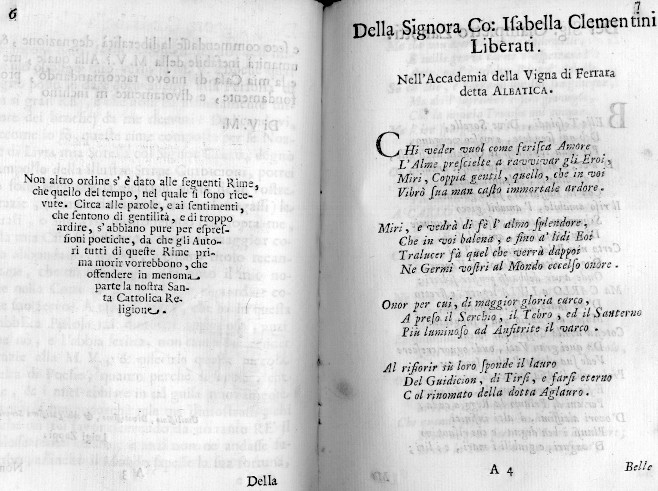 6
Non altro ordine s' è dato alle seguenti Rime,
che quello del tempo, nel quale si sono rice-
vute. Circa alle parole, e ai sentimenti,
che sentono di gentilità, e di troppo
ardire, s'abbiano pure per espres-
sioni poetiche, da che gli Auto-
ri tutti di queste Rime pri-
ma morir vorrebbono, che
offendere in menoma
parte la nostra San-
ta Cattolica Re-
ligione.
Della
7
Della Signora Co: Isabella Clementini
Liberati.
Nell'Accademia della Vigna di Ferrara
detta ALBATICA.
CHi veder vuol come ferisca Amore
L'Alme prescielte a ravvivar gli Eroi,
Miri, Coppia gentil, quello, che in voi
Vibrò sua man casto immortale ardore.
Miri, e vedrà di fè l' almo splendore,
Che in voi balena, e fino a' lidi Eoi
Tralucer fà quel che verrà dappoi
Ne Germi vostri al Mondo eccelso onore.
Onor per cui, di maggior gloria carco,
A preso il Serchio, il Tebro, ed il Santerno
Più luminoso ad Anfitrite il varco.
Al rifiorir sù loro sponde il lauro
Del Guidicion, di Tirsi, e farsi eterno
Col rinomato della dotta Aglauro.
A 4
Belle